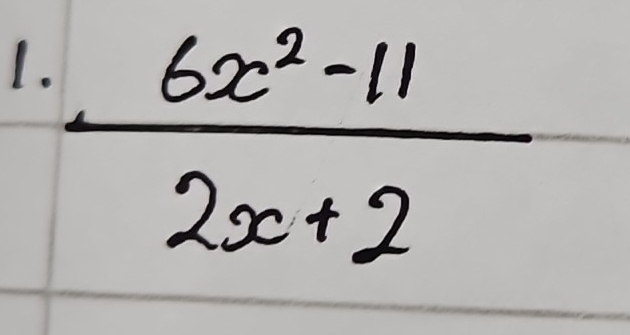 1. 6x² - 11
2x + 2